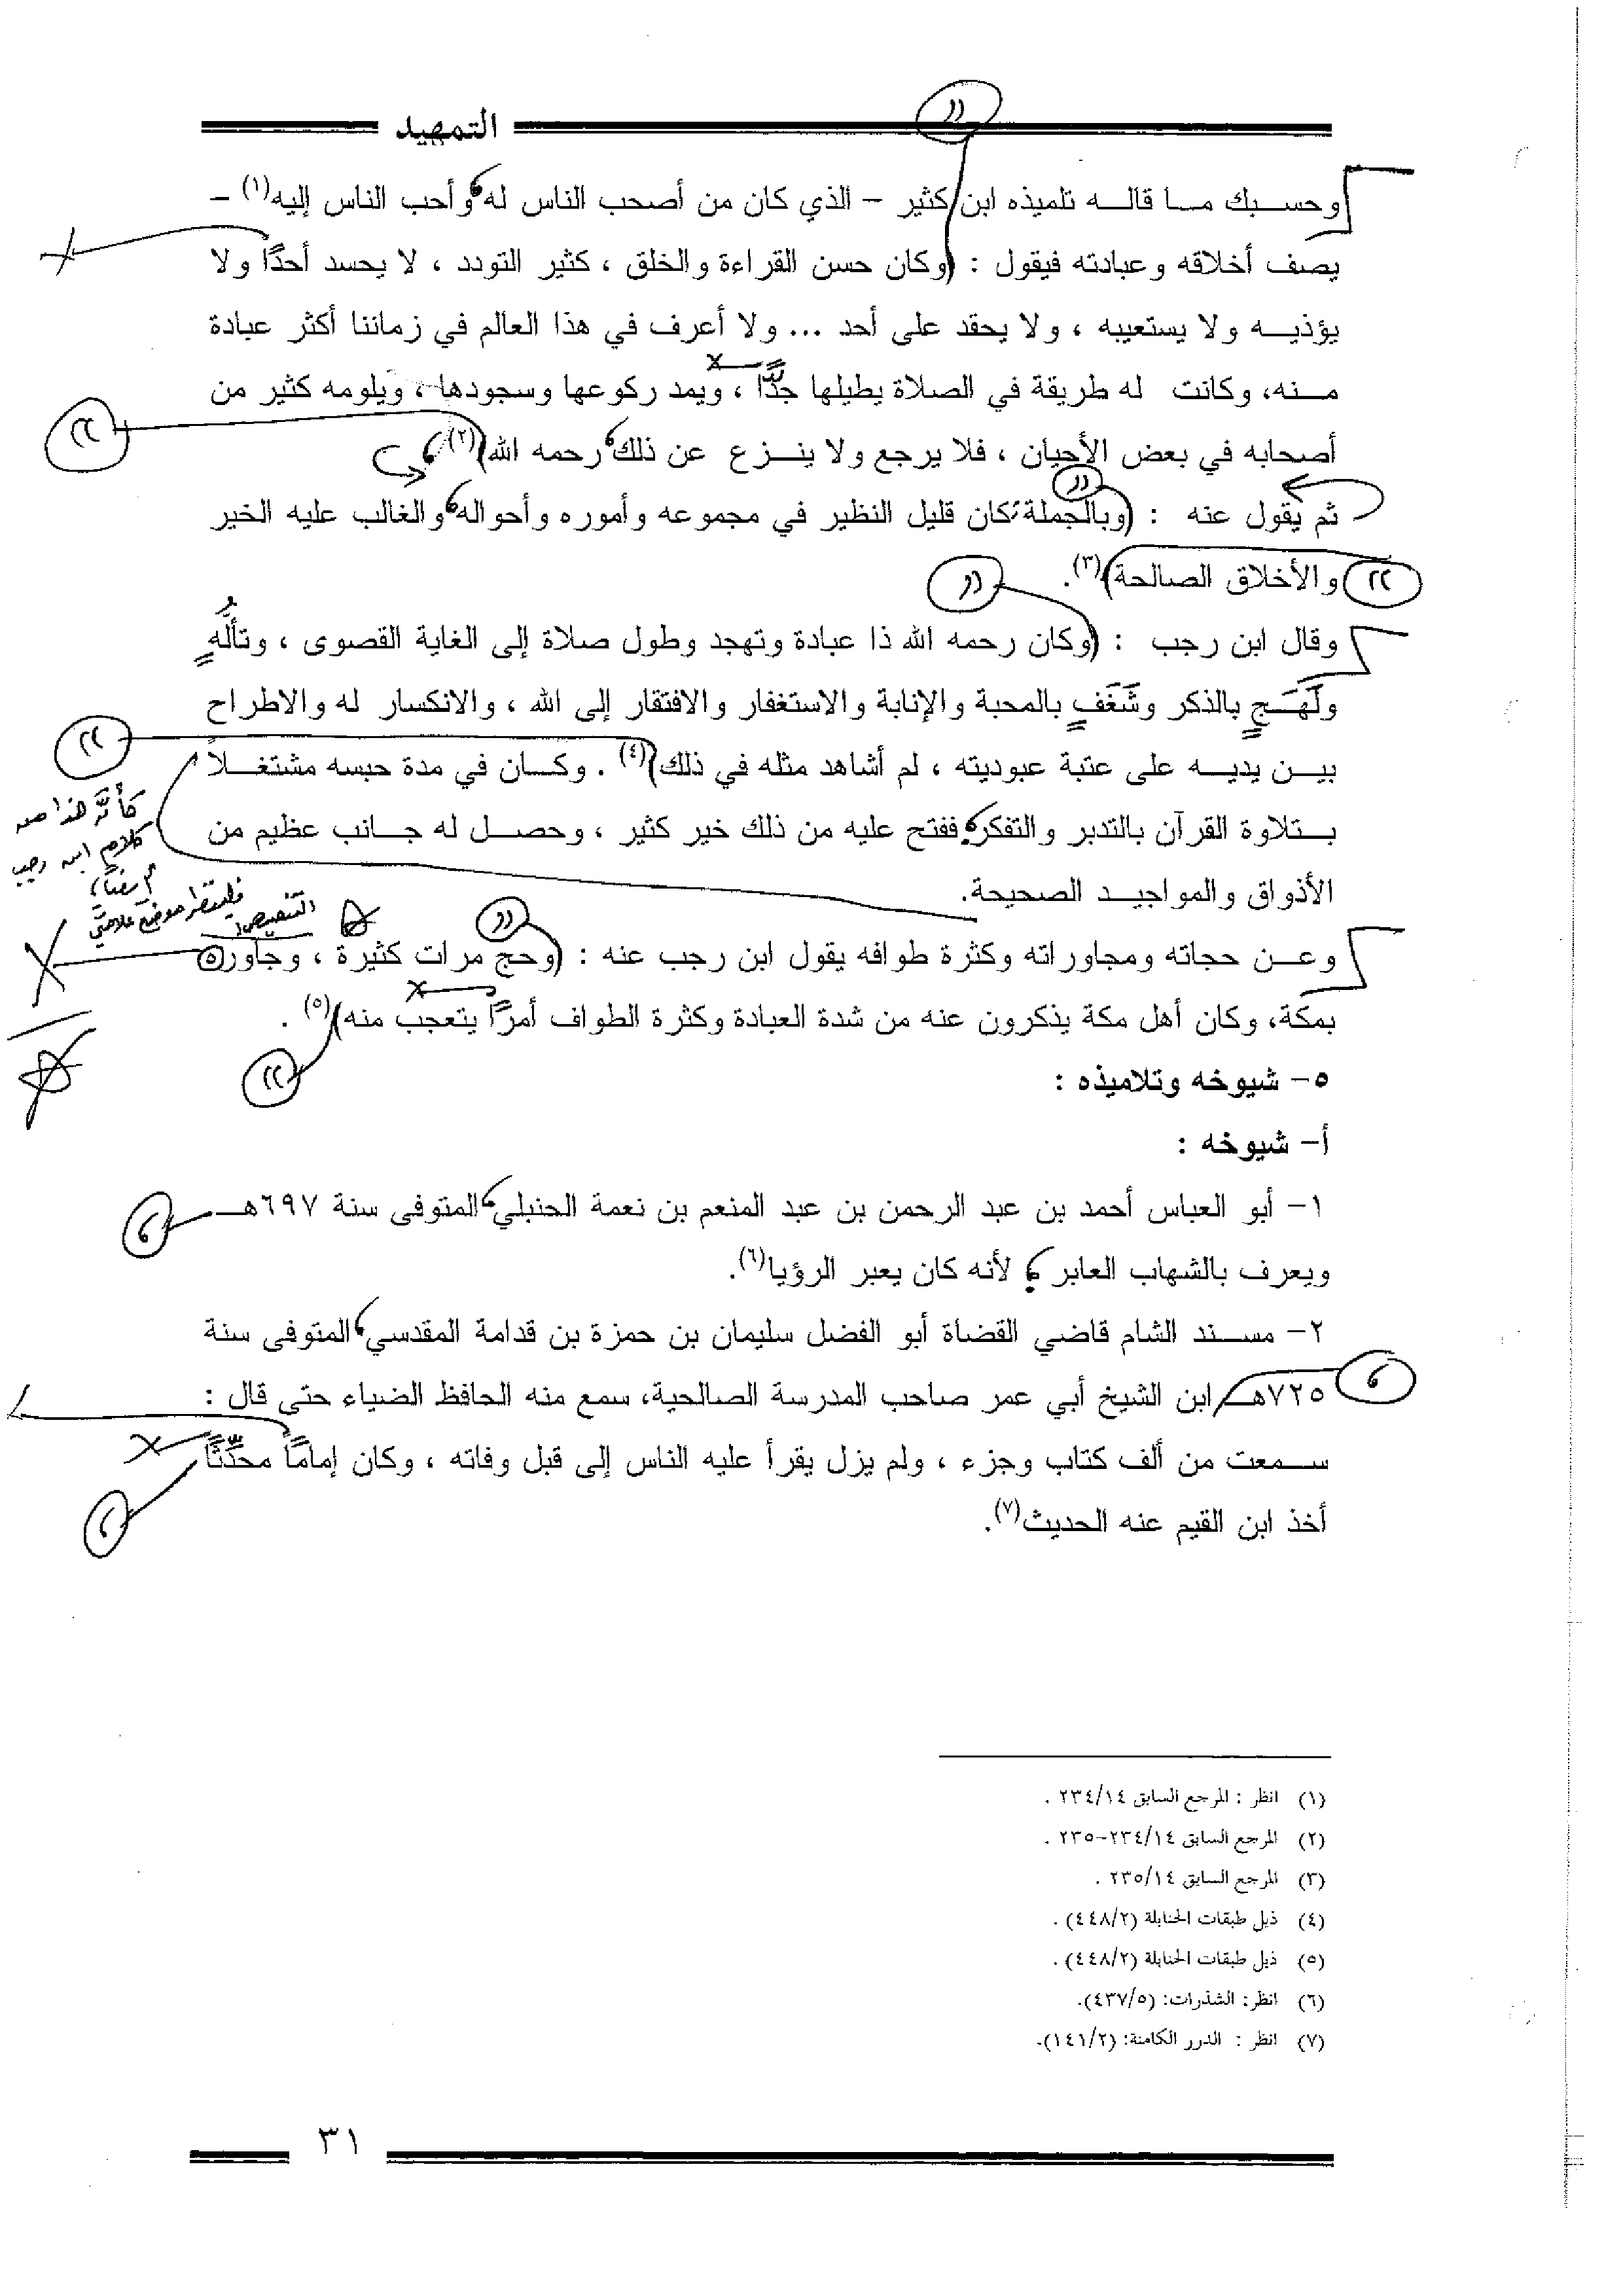 التمهيد
وحسبك ما قاله تلميذه ابن كثير – الذي كان من أصحب الناس له وأحب الناس إليه(١) –
يصف أخلاقه وعبادته فيقول : (وكان حسن القراءة والخلق ، كثير التودد ، لا يحسد أحدًا ولا
يؤذيه ولا يستعيبه ، ولا يحقد على أحد ... ولا أعرف في هذا العالم في زماننا أكثر عبادة
منه، وكانت له طريقة في الصلاة يطيلها جدًّا ، ويمد ركوعها وسجودها ، ويلومه كثير من
أصحابه في بعض الأحيان ، فلا يرجع ولا ينزع عن ذلك رحمه الله)(٢).
ثم يقول عنه : (وبالجملة كان قليل النظير في مجموعه وأموره وأحواله والغالب عليه الخير
والأخلاق الصالحة)(٣).
وقال ابن رجب : (وكان رحمه الله ذا عبادة وتهجد وطول صلاة إلى الغاية القصوى ، وتألُّهٍ
ولَهَجٍ بالذكر وشَغَفٍ بالمحبة والإنابة والاستغفار والافتقار إلى الله ، والانكسار له والاطراح
بين يديه على عتبة عبوديته ، لم أشاهد مثله في ذلك)(٤) . وكان في مدة حبسه مشتغلاً
بتلاوة القرآن بالتدبر والتفكر ففتح عليه من ذلك خير كثير ، وحصل له جانب عظيم من
الأذواق والمواجيد الصحيحة.
كأنَّ هذا من
كلام ابن رجب
أيضًا،
فلينتظر موضع علامتي
التنصيص!
وعن حجاته ومجاوراته وكثرة طوافه يقول ابن رجب عنه : (وحج مرات كثيرة ، وجاور
بمكة، وكان أهل مكة يذكرون عنه من شدة العبادة وكثرة الطواف أمرًا يتعجب منه)(٥) .
٥- شيوخه وتلاميذه :
أ- شيوخه :
١- أبو العباس أحمد بن عبد الرحمن بن عبد المنعم بن نعمة الحنبلي المتوفى سنة ٦٩٧هـ
ويعرف بالشهاب العابر ؛ لأنه كان يعبر الرؤيا(٦).
٢- مسند الشام قاضي القضاة أبو الفضل سليمان بن حمزة بن قدامة المقدسي المتوفى سنة
٧٢٥هـ ابن الشيخ أبي عمر صاحب المدرسة الصالحية، سمع منه الحافظ الضياء حتى قال :
سمعت من ألف كتاب وجزء ، ولم يزل يقرأ عليه الناس إلى قبل وفاته ، وكان إمامًا محدِّثًا
أخذ ابن القيم عنه الحديث(٧).
(١) انظر : المرجع السابق ٢٣٤/١٤ .
(٢) المرجع السابق ٢٣٤/١٤-٢٣٥ .
(٣) المرجع السابق ٢٣٥/١٤ .
(٤) ذيل طبقات الحنابلة (٤٤٨/٢) .
(٥) ذيل طبقات الحنابلة (٤٤٨/٢) .
(٦) انظر: الشذرات: (٤٣٧/٥).
(٧) انظر : الدرر الكامنة: (١٤١/٢).
٣١